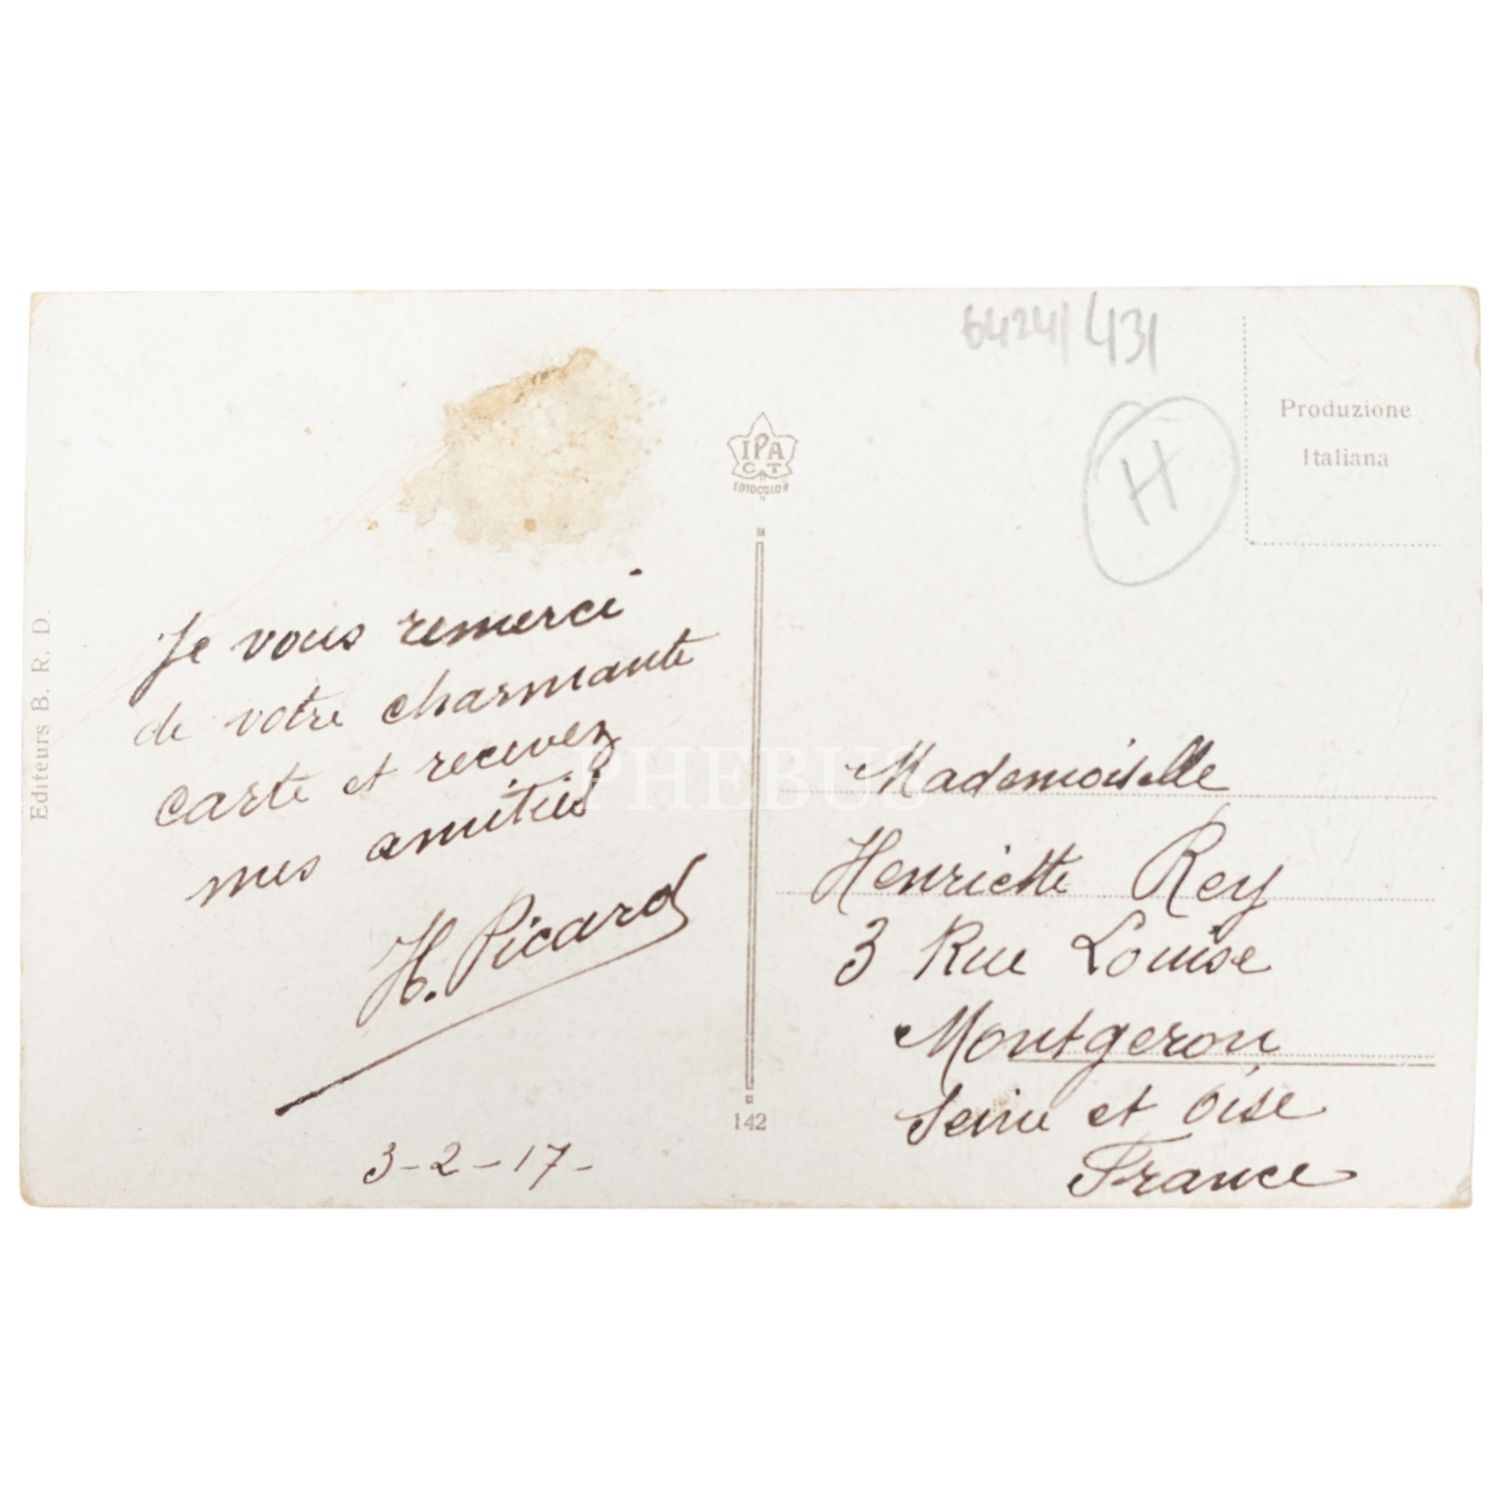 6424/431
H
Produzione
Italiana
IPA
CT
FOTOCOLOR
Editeurs B. R. D.
Je vous remerci
de votre charmante
carte et recevez
mes amitiés
H. Picard
3-2-17-
142
PHEBUS
Mademoiselle
Henriette Rey
3 Rue Louise
Montgeron
Seine et Oise
France